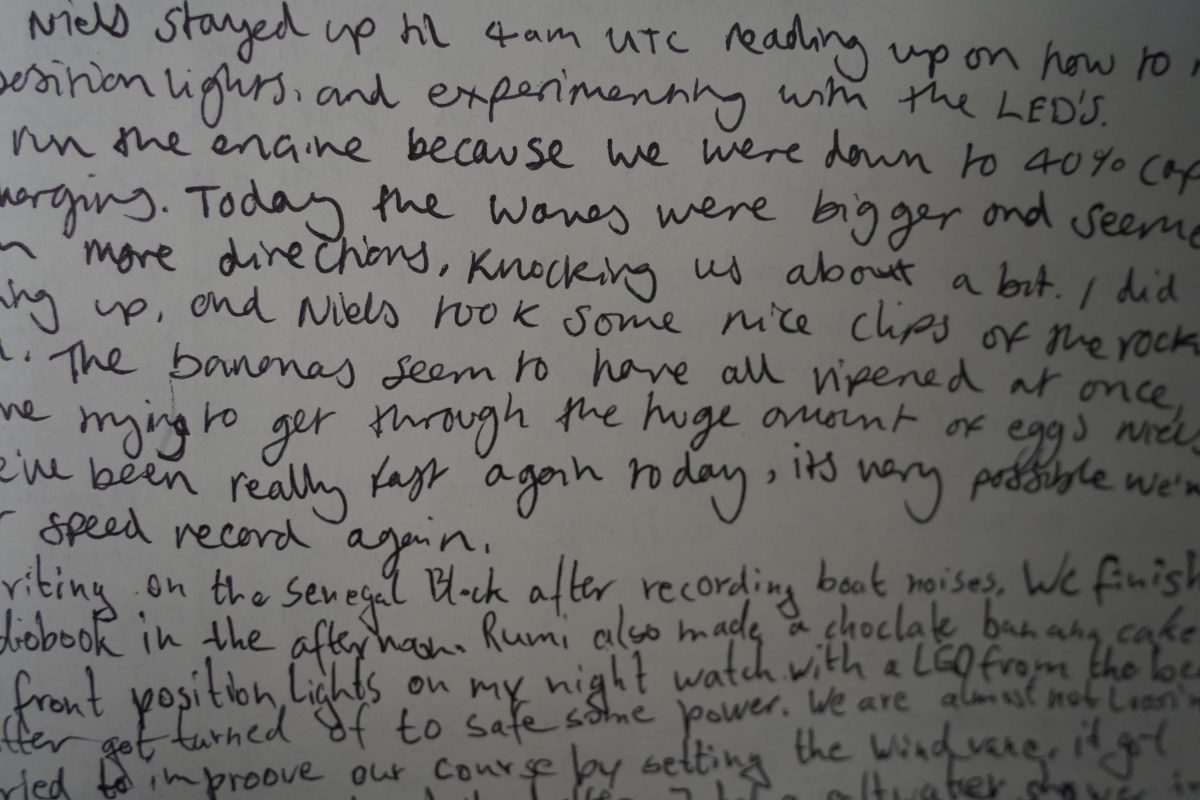 Niels stayed up til 4am UTC reading up on how to
position lights, and experimenting with the LED'S.
run the engine because we were down to 40% cap
harging. Today the waves were bigger and seeme
more directions, knocking us about a bit. I did
ing up, and Niels took some nice clips of the rock
. The bananas seem to have all ripened at once,
trying to get through the huge amount of eggs Niels
e've been really fast again today, its very possible we'
speed record again.
riting on the Senegal Block after recording boat noises. We finish
diobook in the afternoon. Rumi also made a choclate banana cake
front position lights on my night watch with a LED from the
get turned of to safe some power. We are almost not
ried to improove our course by setting the windvane, it got
saltwater shower